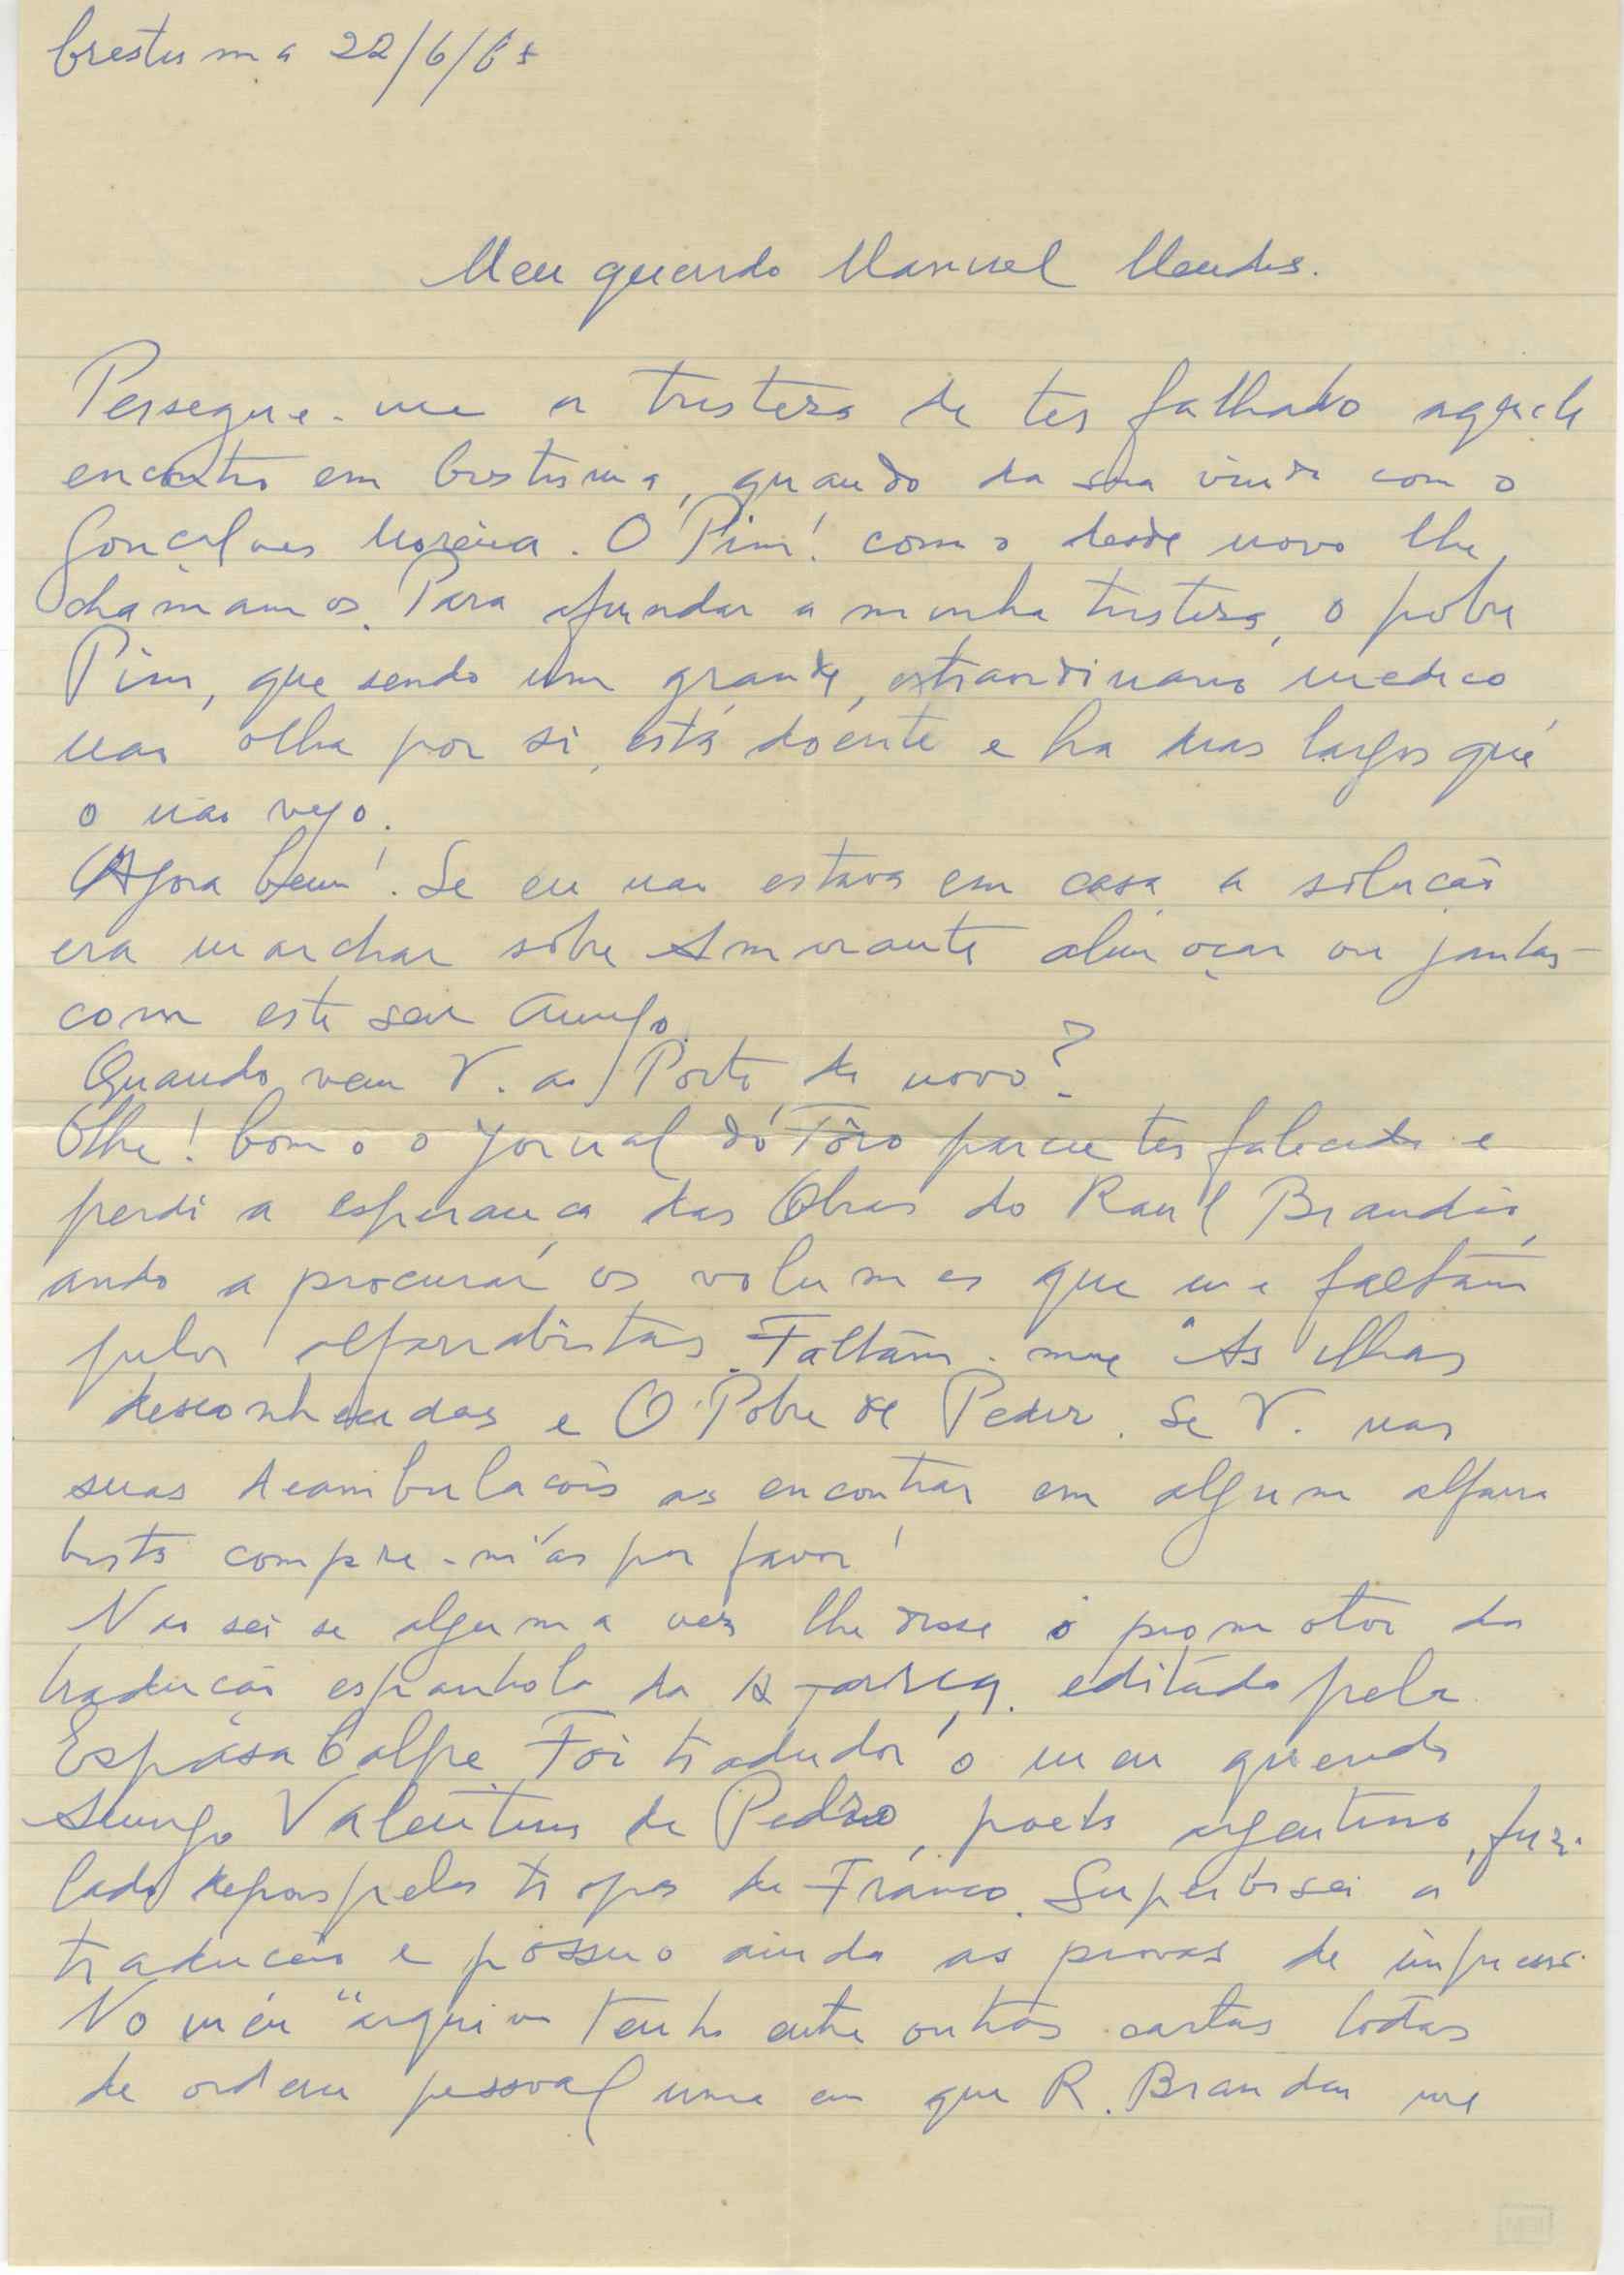 Crestuma 22/6/65
Meu querido Manuel Mendes.
Persegue-me a tristeza de ter falhado aquele
encontro em Crestuma, quando da sua vinda com o
Gonçalves Moreira. O Pim! como desde novo lhe
chamamos. Para afundar a minha tristeza, o pobre
Pim, que sendo um grande, extraordinario medico
nao olha por si, está doente e ha dias largos que
o não vejo.
Agora bem! Se eu nao estava em casa a solucão
era marchar sôbre Amarante almoçar ou jantar
com este seu amigo
Quando vem V. ao Porto de novo?
Olhe! Como o Jornal do Fôro parece ter falecido e
perdi a esperança das Obras do Raul Brandão,
ando a procurar os volumes que me faltam
pelos alfarrabistas. Faltam-me "As ilhas
desconhecidas e O Pobre de Pedir. Se V. nas
suas deambulacois as encontrar em algum alfarra
bista compre-m'as por favor!
Nao sei se alguma vez lhe disse o promotor da
traducão espanhola da A Farsa. editada pela
Espasa Calpe. Foi tradudor o meu querido
Amigo Valentim de Pedro, poeta argentino, fuzi-
lado depois pelas tropas de Franco. Superbisei a
traducão e possuo ainda as provas de impressã
No meu "arquivo tenho entre outras cartas todas
de ordem pessoal uma em que R. Brandão me